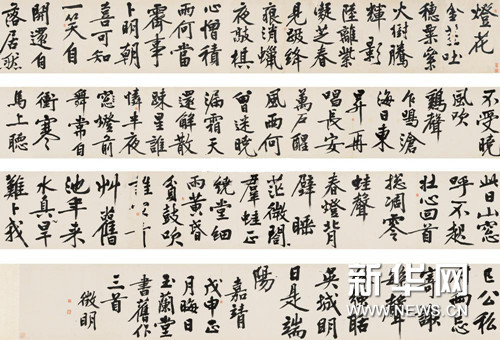 燈花
金蕊吐
穗粲粲
火樹騰
輝影
陸離紫
凝芝春
見跋絳
痕消蠟
夜敲棋
心憎積
雨何當
霽事
卜明朝
喜可知
一笑自
開還自
落居然
不受晚
風吹
鷄聲
乍鳴滄
海日東
昇再
唱長安
萬戶醒
風雨何
曾迷晚
漏霜天
還解散
疎星誰
憐半夜
窓燈前
舞常自
衝寒
馬上聽
此日山窓
呼不起
壮心回首
揔凋零
蛙聲
春燈背
壁睡
茫微閣
羣蛙正
繞堂細
雨黄昏
貧鼓吹
誰
艸舊
池年來
水真旱
難卜我
已公私
忘
寄謝
聲
聒
吴城明
日是端
陽
嘉靖
戊申正
月晦日
玉蘭堂
書舊作
三首
徵明
新华网